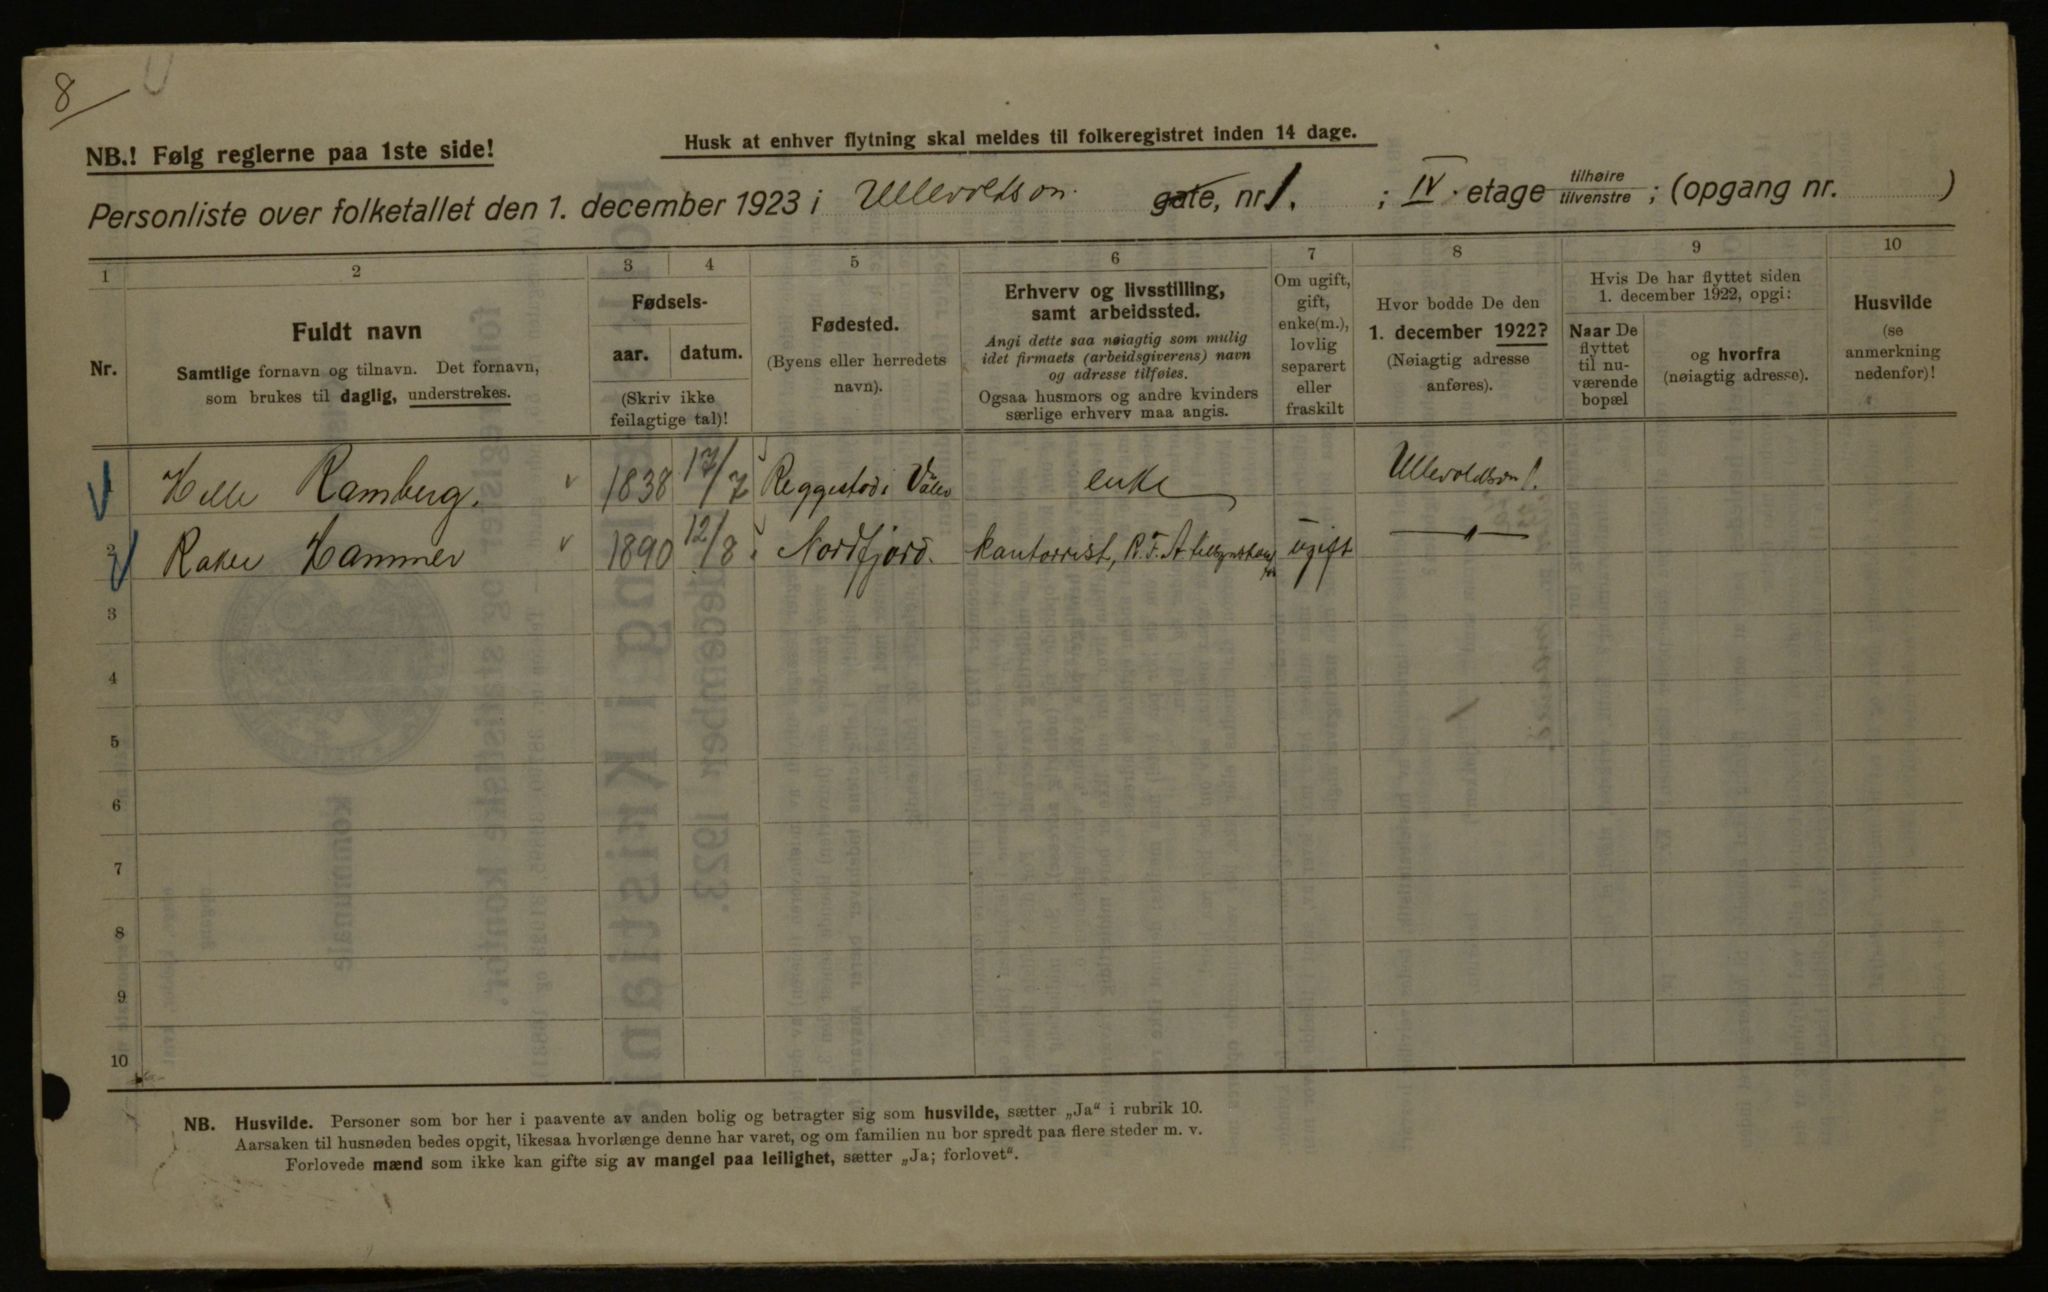 8
NB.! Følg reglerne paa 1ste side!
Husk at enhver flytning skal meldes til folkeregistret inden 14 dage.
Personliste over folketallet den 1. december 1923 i Ullevoldsvn. gate, nr. 1. ; IV. etage tilhøire tilvenstre ; (opgang nr. )
1 2 3 4 5 6 7 8 9 10
Nr.
Fuldt navn
Samtlige fornavn og tilnavn. Det fornavn,
som brukes til daglig, understrekes.
Fødsels-
aar. datum.
(Skriv ikke
feilagtige tal)!
Fødested.
(Byens eller herredets
navn).
Erhverv og livsstilling,
samt arbeidssted.
Angi dette saa nøiagtig som mulig
idet firmaets (arbeidsgiverens) navn
og adresse tilføies.
Ogsaa husmors og andre kvinders
særlige erhverv maa angis.
Om ugift,
gift,
enke(m.),
lovlig
separert
eller
fraskilt
Hvor bodde De den
1. december 1922?
(Nøiagtig adresse
anføres).
Hvis De har flyttet siden
1. december 1922, opgi:
Naar De
flyttet
til nu-
værende
bopæl
og hvorfra
(nøiagtig adresse).
Husvilde
(se
anmerkning
nedenfor)!
1 Helle Ramberg. 1838 17/7 Reggestad i Våler enke Ullevoldsvn 1.
2 Hammer 1890 12/8 Nordfjord. kantorrist, R.T.A. ugift
3
4
5
6
7
8
9
10
NB. Husvilde. Personer som bor her i paavente av anden bolig og betragter sig som husvilde, sætter „Ja“ i rubrik 10.
Aarsaken til husnøden bedes opgit, likesaa hvorlænge denne har varet, og om familien nu bor spredt paa flere steder m. v.
Forlovede mænd som ikke kan gifte sig av mangel paa leilighet, sætter „Ja; forlovet“.